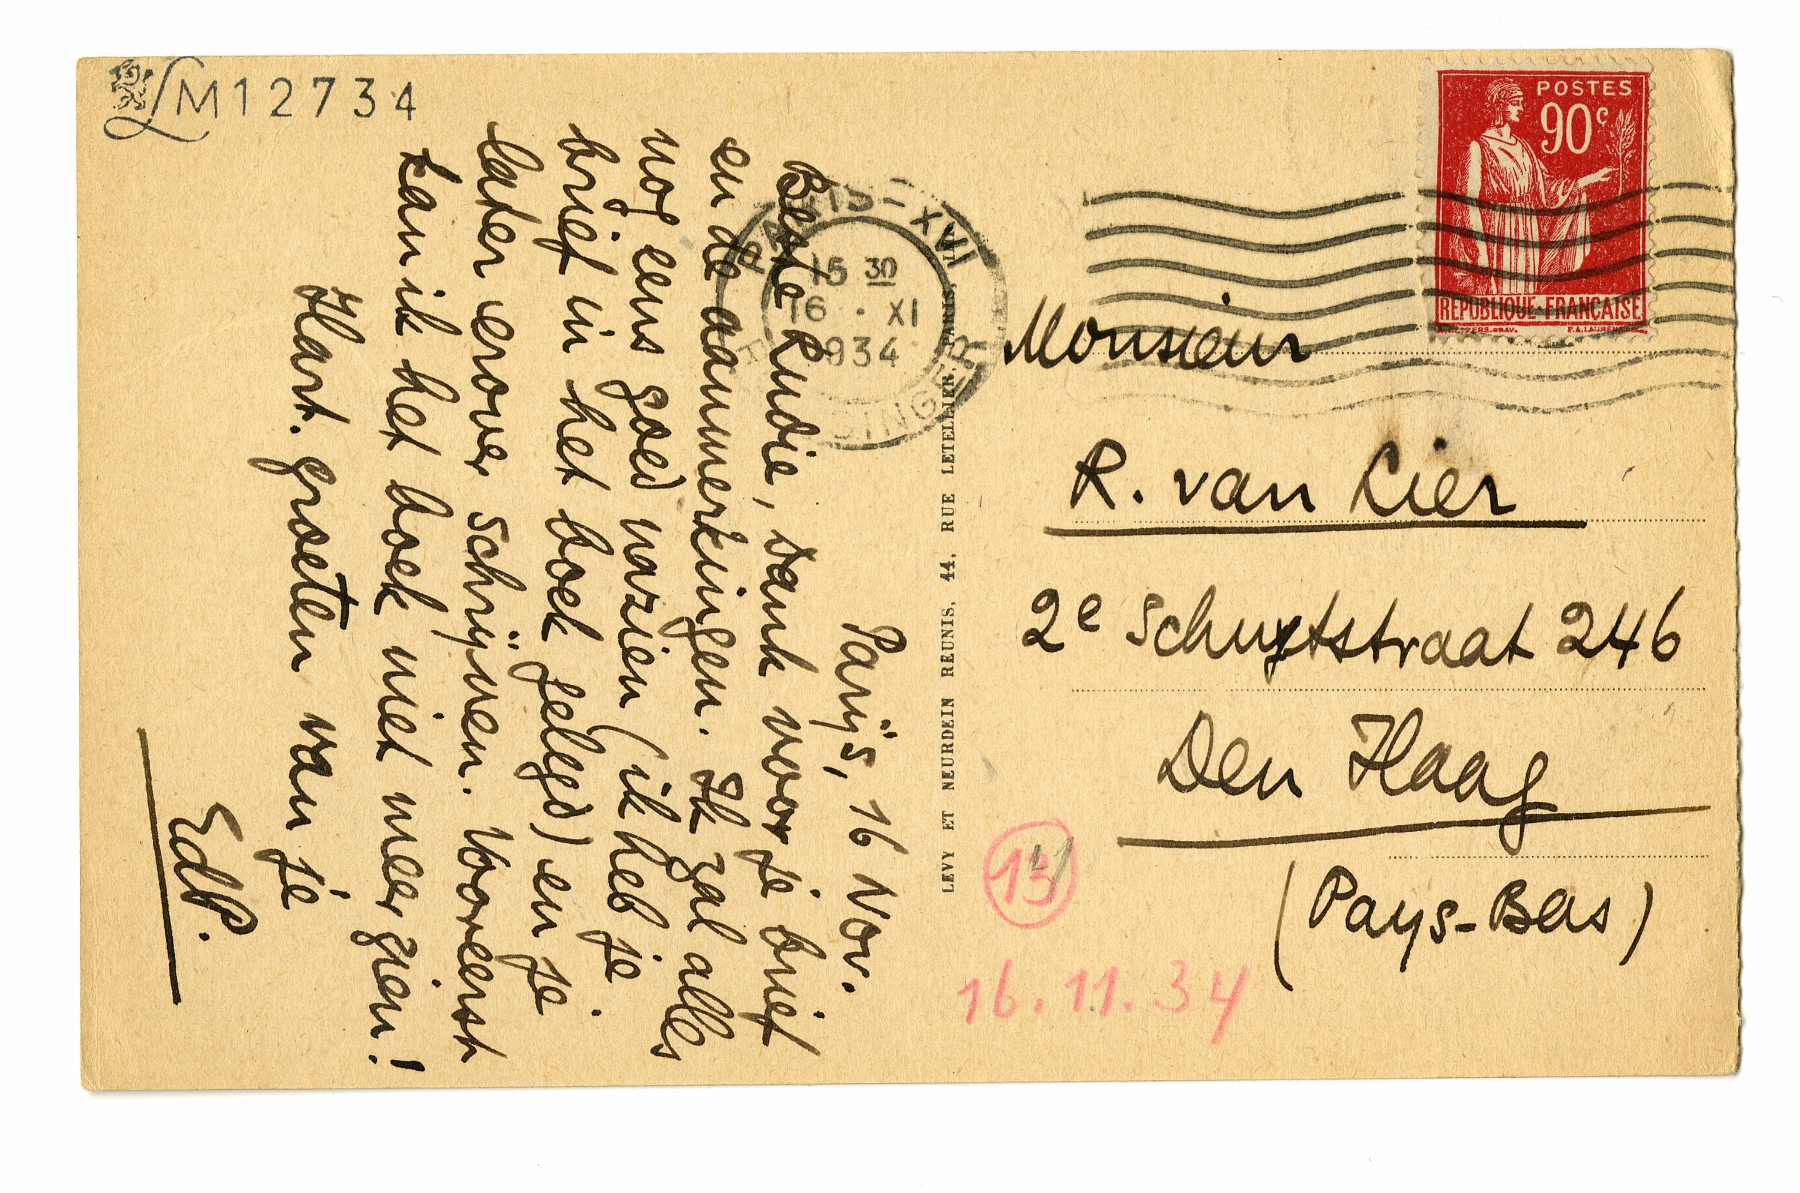 LM12734
Parijs, 16 Nov.
Beste Rudie, dank voor je brief
en de aanmerkingen. Ik zal alles
nog eens goed nazien (ik heb je
brief in het boek gelegd) en je
later erover schrijven. Vooreerst
kan ik het boek niet meer zien!
Hart. groeten van je
EdP.
LEVY ET NEURDEIN REUNIS, 44, RUE LETELLIER, PARIS
PARIS-XVI
15 30
16 · XI
1934
SINGER
POSTES
90c
REPUBLIQUE FRANÇAISE
Monsieur
R. van Lier
2e Schuytstraat 246
Den Haag
(Pays-Bas)
13
16.11.34